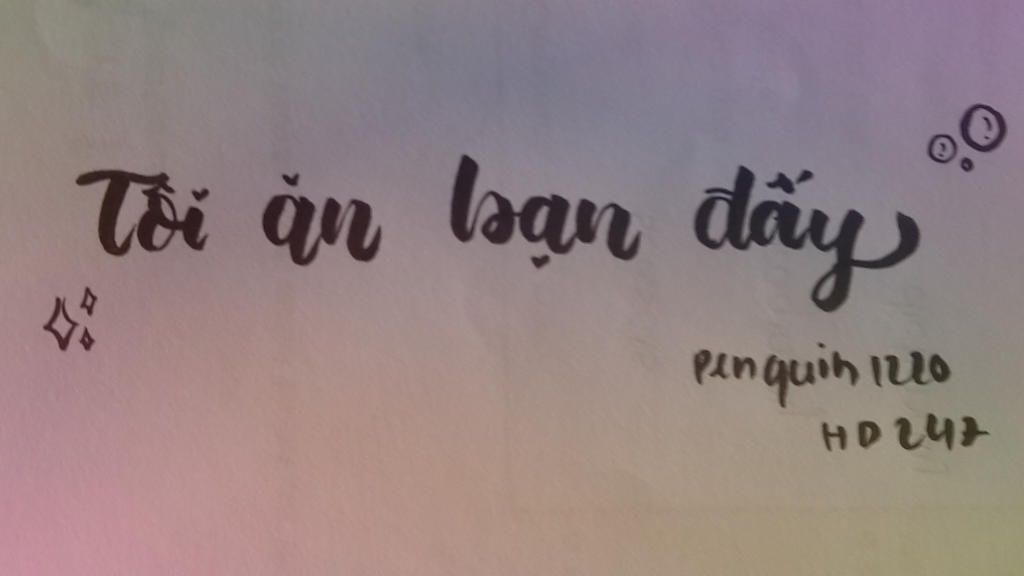 Tôi ăn bạn đấy
penguin1220
HD247